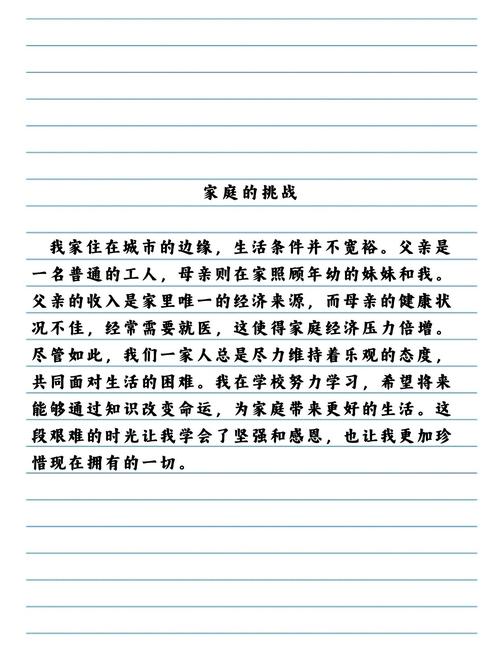 家庭的挑战
我家住在城市的边缘，生活条件并不宽裕。父亲是
一名普通的工人，母亲则在家照顾年幼的妹妹和我。
父亲的收入是家里唯一的经济来源，而母亲的健康状
况不住，经常需要就医，这使得家庭经济压力倍增。
尽管如此，我们一家人总是尽力维持着乐观的态度，
共同面对生活的困难。我在学校努力学习，希望将来
能够通过知识改变命运，为家庭带来更好的生活。这
段艰难的时光让我学会了坚强和感恩，也让我更加珍
惜现在拥有的一切。